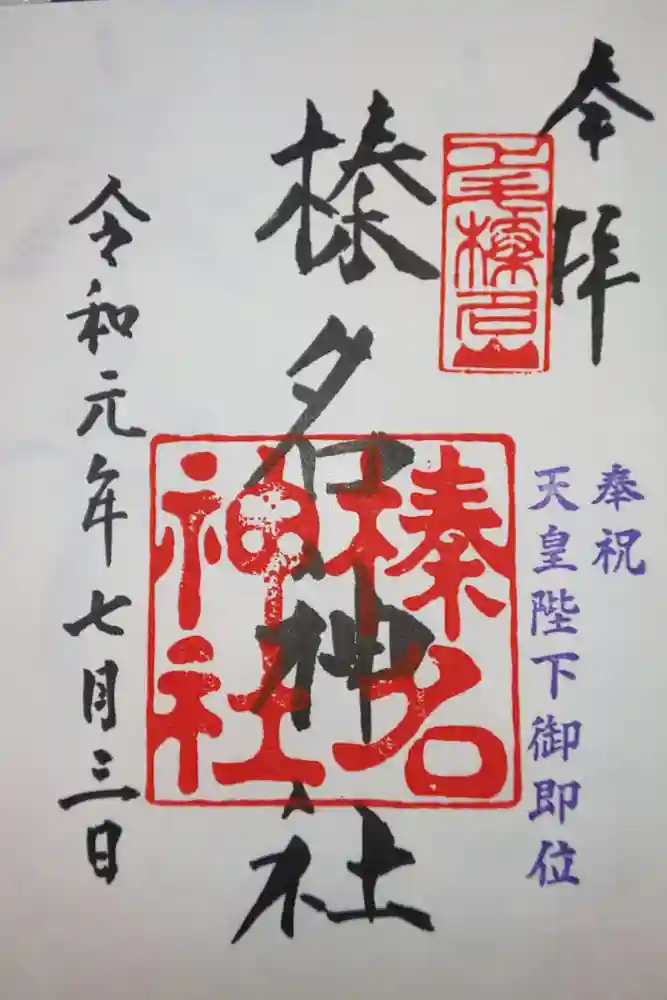 奉拝
上毛榛名山
奉祝
天皇陛下御即位
榛名神社
榛名
神社
令和元年七月三日